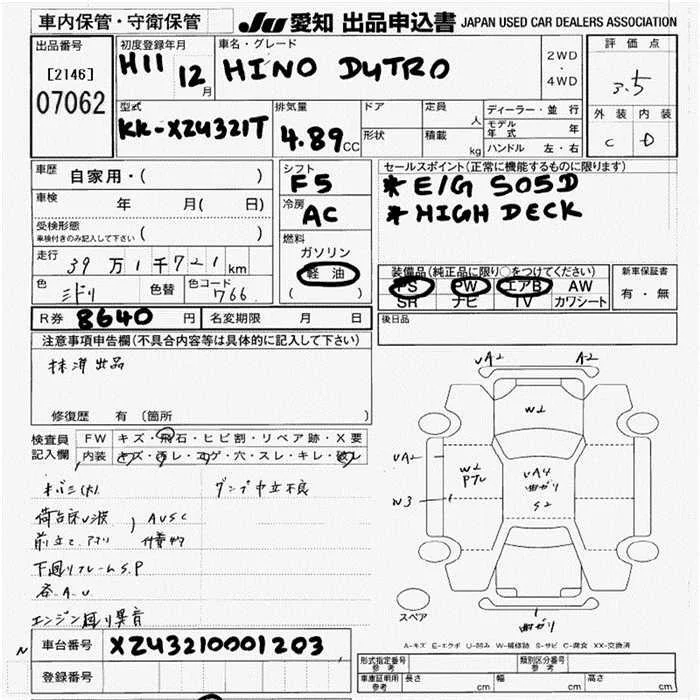 車内保管・守衛保管
JU 愛知 出品申込書 JAPAN USED CAR DEALERS ASSOCIATION
出品番号
[2146]
07062
初度登録年月
H11 12月
車名・グレード
HINO DUTRO
2WD
・
4WD
評価点
3.5
型式
KK-XZU321T
排気量
4.89 CC
ドア
形状
定員 人
積載 kg
ディーラー・並 行
モデル年式 年
ハンドル 左・右
外装 内装
C D
車歴
自家用・( )
車検 年 月( 日)
受検形態
車検付きのみ記入して下さい ( )
走行
39万1千721km
色 ミドリ 色替 色コード 766
シフト
F5
冷房
AC
燃料
ガソリン
軽油
( )
セールスポイント(正常に機能するものに限ります)
*E/G S05D
*HIGH DECK
装備品(純正品に限り○をつけてください)
PS PW エアB AW
SR ナビ TV カワシート
新車保証書
有・無
R券 8640円 名変期限 月 日
後日品
注意事項申告欄(不具合内容等は具体的に記入して下さい)
抹消出品
修復歴 有 (箇所 )
検査員
記入欄
FW キズ・飛石・ヒビ割・リペア跡・X要
内装 キズ・汚レ・コゲ・穴・スレ・キレ・破レ
ダンプ中立不良
荷台床U波
AUSC
下廻りフレームS.P
各.A.U
エンジン廻り異音
UA2 A2
W2
UA2
W2
UA4
曲ガリ
S2
W3
1
スペア
1
曲ガリ
A-キズ E-エクボ U-凹み W-補修跡 S-サビ C-腐食 XX-交換済
N
車台番号 XZU3210001203
登録番号
形式指定番号
参考
類別区分番号
参考
車庫証明用
参考
長さ cm 幅 cm 高さ cm